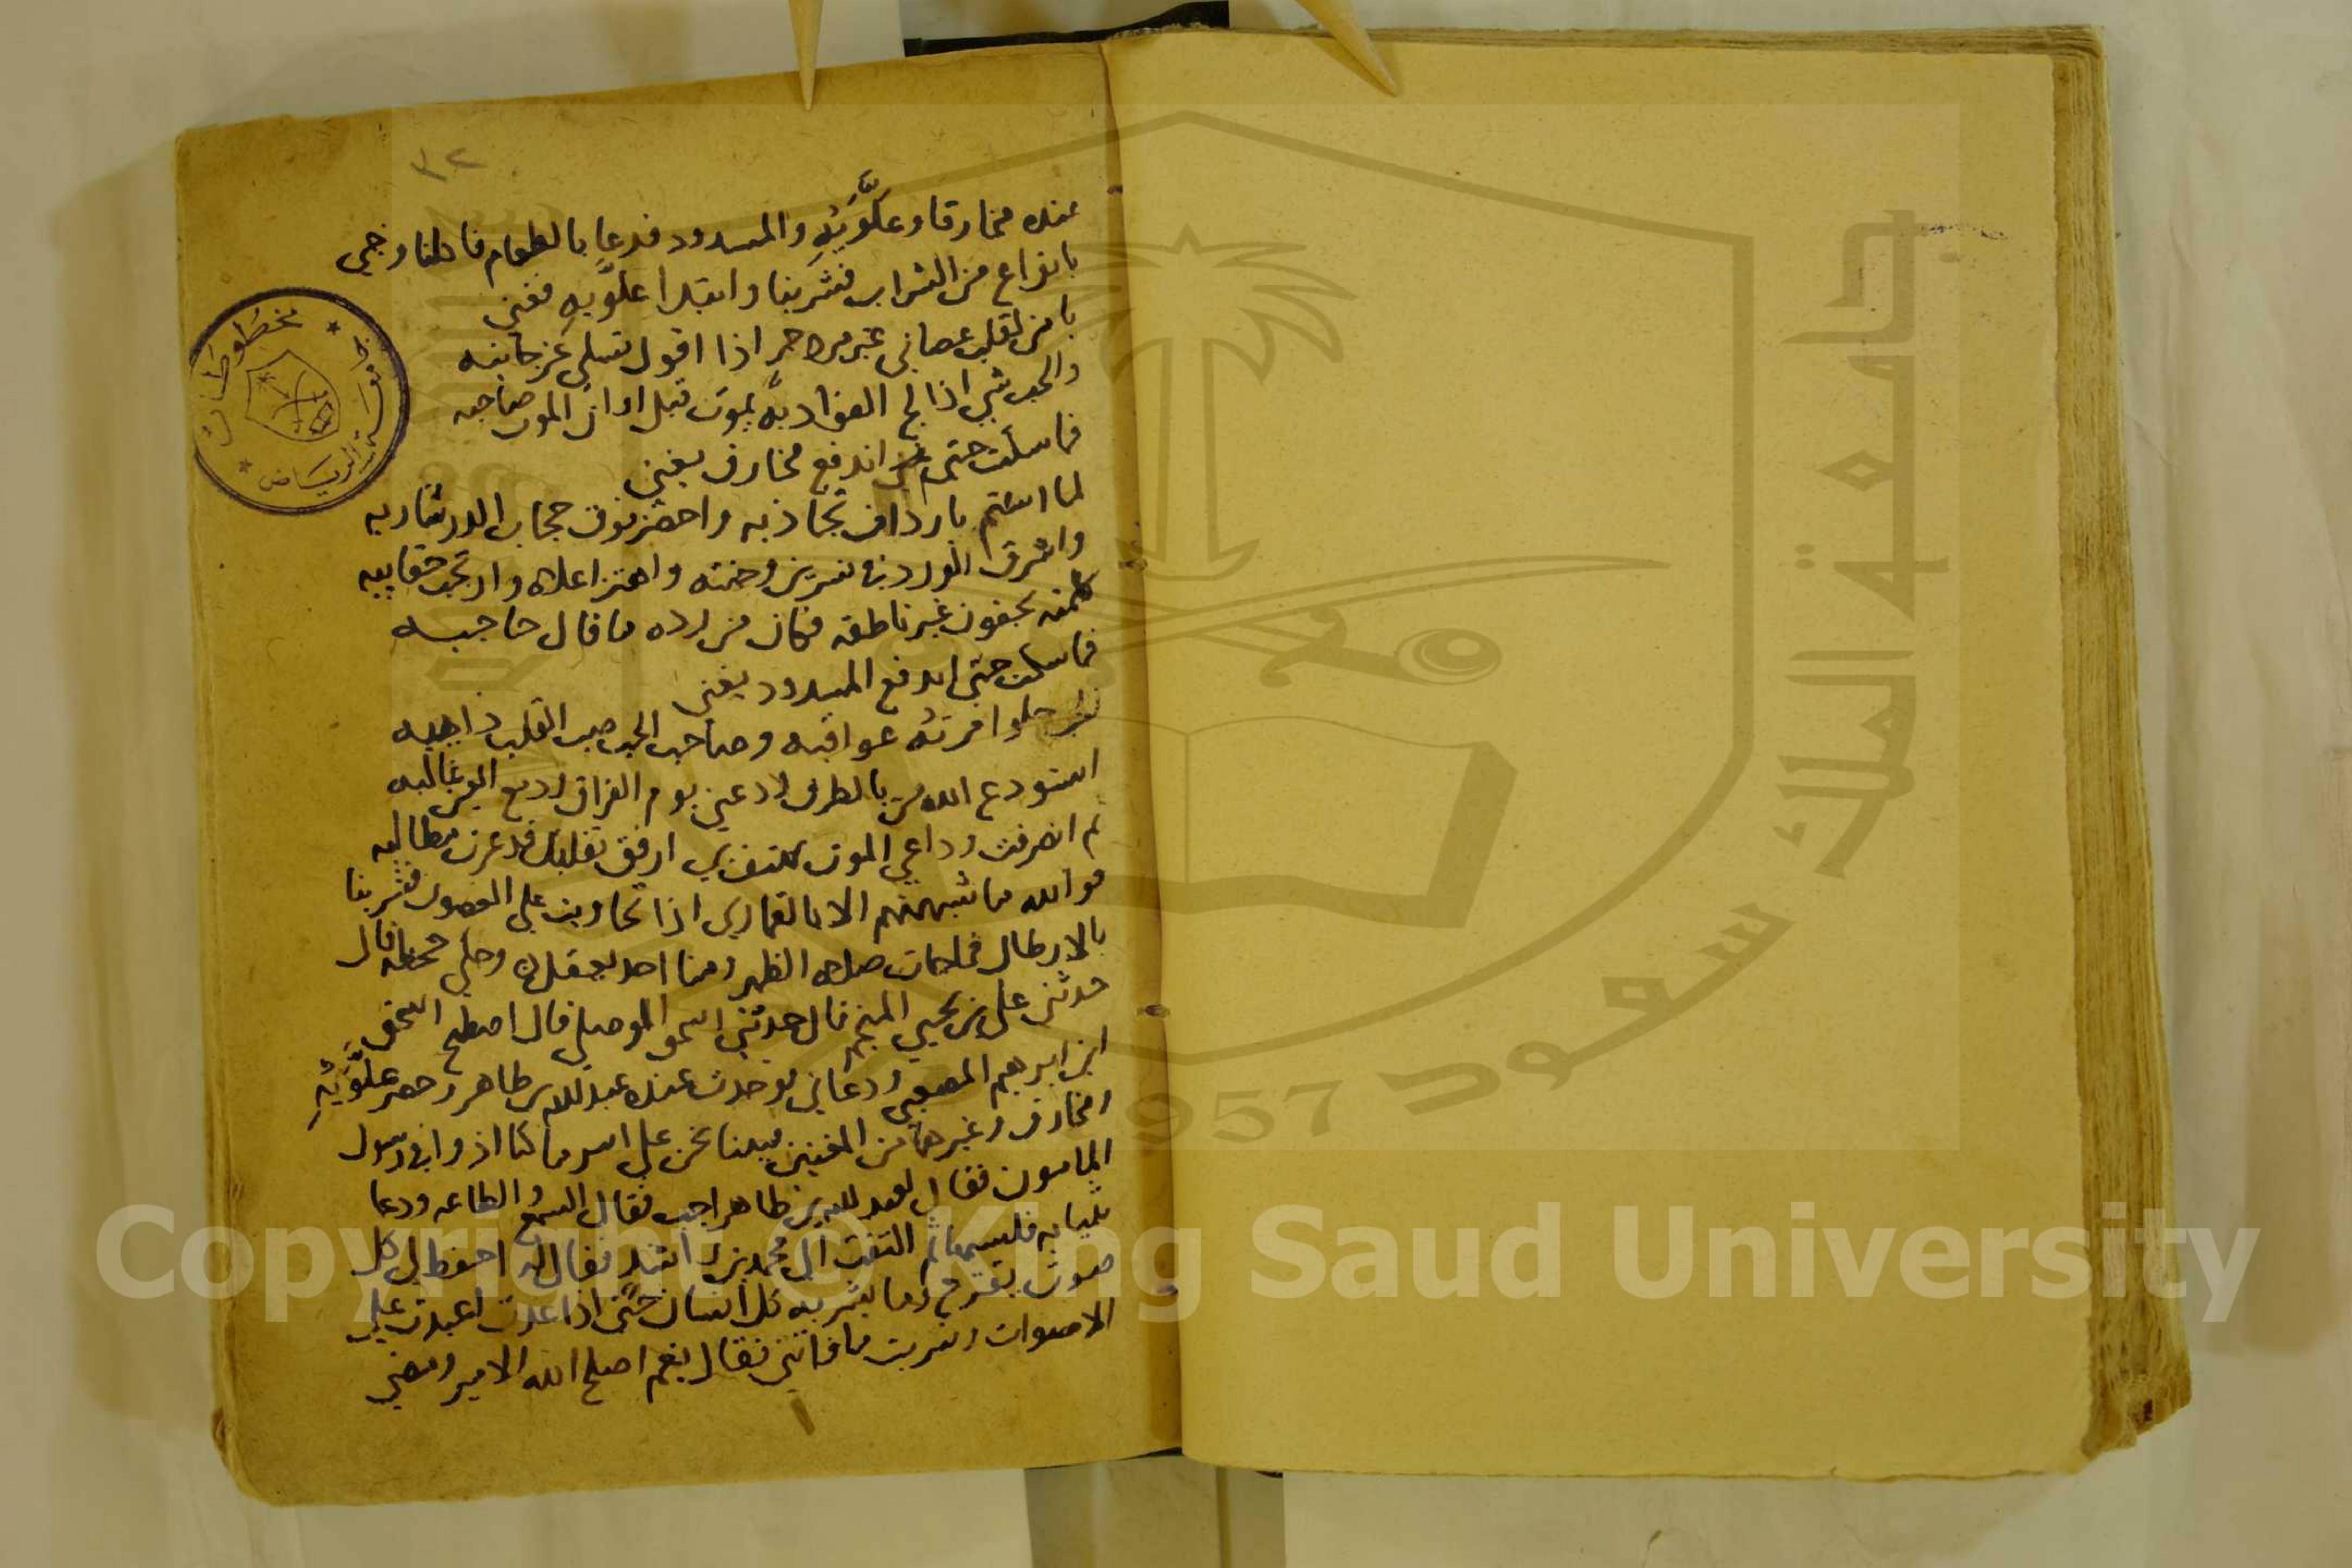 ٣٢
عنده مخارقا وعلّويه والمسدود فدعا بالطعام فاكلنا وجي
بانواع من الشراب فشربنا وابتدا علّويه فغنى
يا من لقلب عصاني غير مزدجر اذا اقول تسلى عز جانبه
والحب شي اذا لج الفؤاد به يموت قبل اوان الموت صاحبه
فما سكت حتى اندفع مخارق يغني
لما استتم بارداف تجاذبه واخضر فوق حجاب الدر شاربه
واشرق الورد نسرين وجنته واهتز اعلاه وارتجت حقايبه
كلمته بجفون غير ناطقة فكان من رده ما قال حاجبه
فما سكت حتى اندفع المسدود يغني
حلوا امرته عواقبه وصاحب الحب صب القلب ذاهبه
استودع الله من بالطرف ودعني يوم الفراق ودمع العين غالبه
ثم انصرفت وداعي الموت يهتف بي ارفق بقلبك قد عزت مطالبه
فوالله ما شبهتهم الا بالقماري اذا تجاوبت على الغصون فشربنا
بالارطال فما جات صلاة الظهر ومنا احد يعقل وحكى جحظة قال
حدثني علي بن يحيى المنجم قال حدثني اسحق الموصلي قال اصطبح اسحق
ابن ابرهيم المصعبي ودعاني فوجدت عنده عبد الله بن طاهر وحضر علّويه
ومخارق وغيرهما من المغنين فبينا نحن على اسر ما كنا اذ وافى رسول
المامون فقال لعبد الله بن طاهر اجب فقال السمع والطاعه ودعا
بثيابه فلبسها ثم التفت الى محمد بن راشد فقال له احفظ لي كل
صوت يقترح وما يشربه كل انسان حتى اذا عدت اعيدت علي
الاصوات وشربت ما فاتني فقال نعم اصلح الله الامير ومضى
مخطوطات
جامعة الرياض
جامعة الملك سعود
1957
Copyright © King Saud University